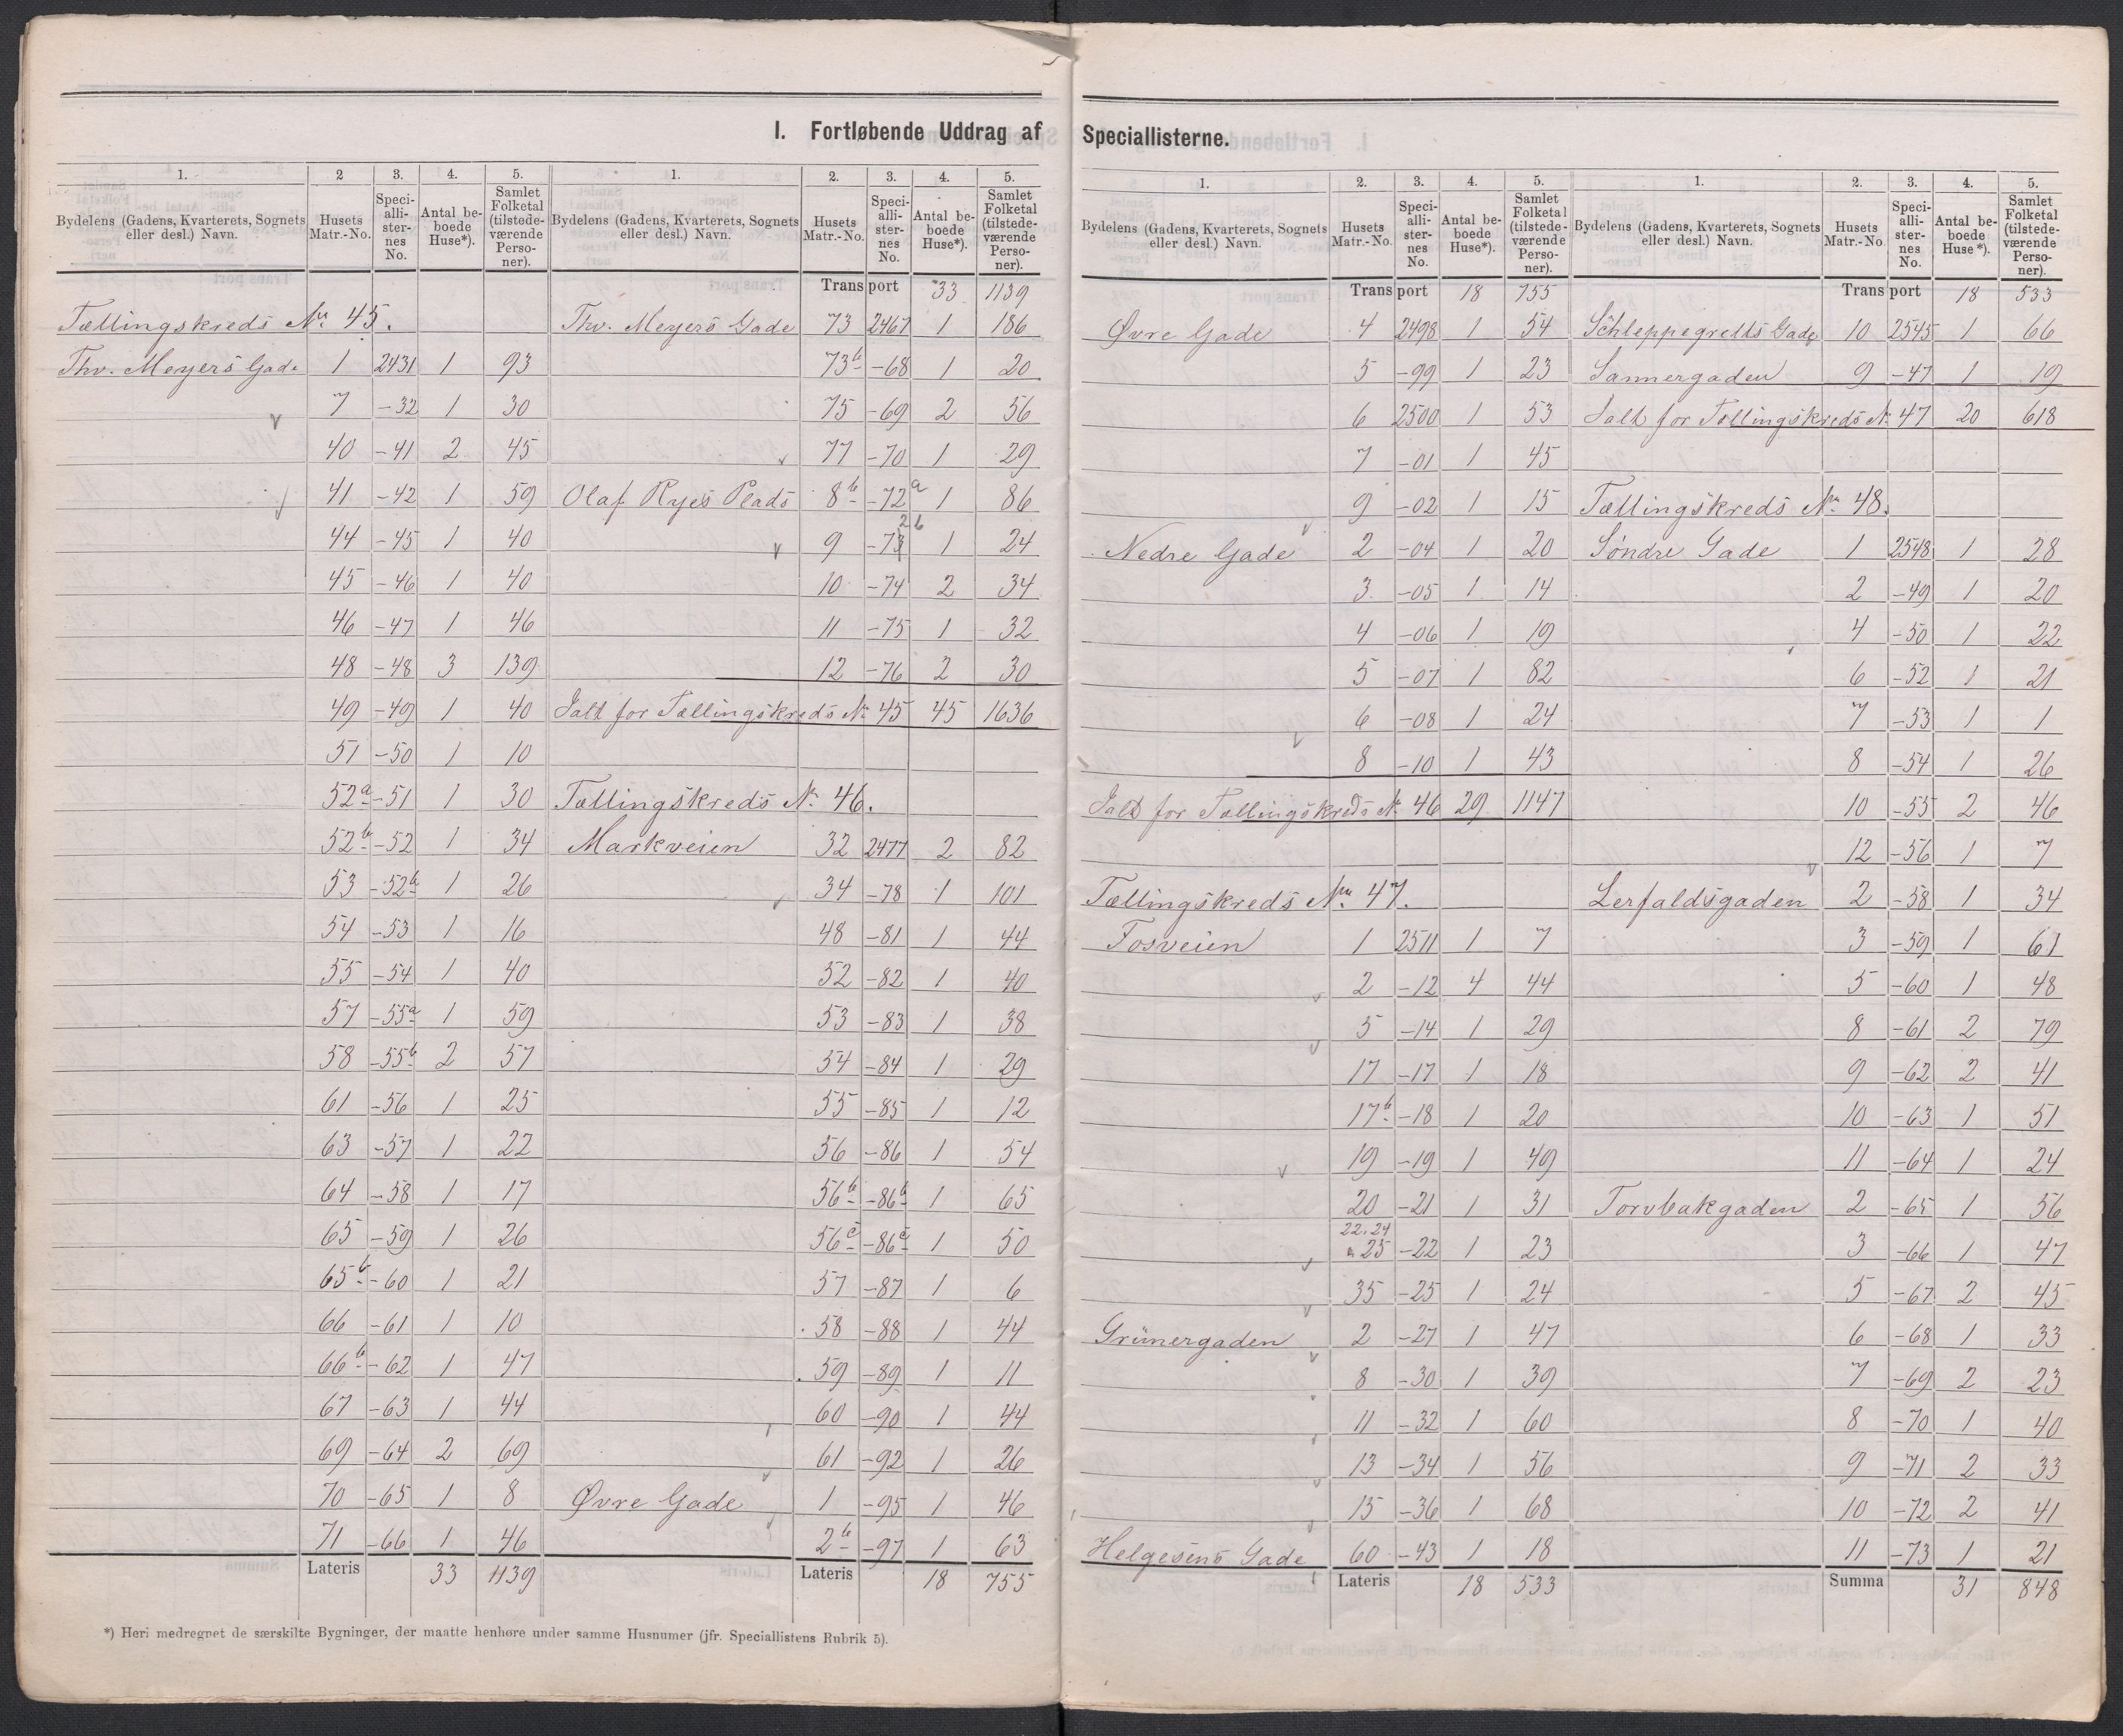 I. Fortløbende Uddrag af Speciallisterne.
1. 2 3. 4. 5.
Bydelens (Gadens, Kvarterets, Sognets eller desl.) Navn. Husets Matr.-No. Speciallisternes No. Antal beboede Huse*). Samlet Folketal (tilstedeværende Personer).
Tællingskreds No. 45.
Thv. Meyers Gade 1 2431 1 93
7 -32 1 30
40 -41 2 45
41 -42 1 59
44 -45 1 40
45 -46 1 40
46 -47 1 46
48 -48 3 139
49 -49 1 40
51 -50 1 10
52a -51 1 30
52b -52 1 34
53 -52b 1 26
54 -53 1 16
55 -54 1 40
57 -55a 1 59
58 -55b 2 57
61 -56 1 25
63 -57 1 22
64 -58 1 17
65 -59 1 26
65b -60 1 21
66 -61 1 10
66b -62 1 47
67 -63 1 44
69 -64 2 69
70 -65 1 8
71 -66 1 46
Lateris 33 1139
1. 2. 3. 4. 5.
Bydelens (Gadens, Kvarterets, Sognets eller desl.) Navn. Husets Matr.-No. Speciallisternes No. Antal beboede Huse*). Samlet Folketal (tilstedeværende Personer).
Transport 33 1139
Thv. Meyers Gade 73 2467 1 186
73b -68 1 20
75 -69 2 56
77 -70 1 29
Olaf Ryes Plads 8b -72a 1 86
9 -73 2b 1 24
10 -74 2 34
11 -75 1 32
12 -76 2 30
Ialt for Tællingskreds No. 45 45 1636
Tællingskreds No. 46.
Markveien 32 2477 2 82
34 -78 1 101
48 -81 1 44
52 -82 1 40
53 -83 1 38
54 -84 1 29
55 -85 1 12
56 -86 1 54
56b -86b 1 65
56c -86c 1 50
57 -87 1 6
58 -88 1 44
59 -89 1 11
60 -90 1 44
61 -92 1 26
Øvre Gade 1 -95 1 46
2b -97 1 63
Lateris 18 755
*) Heri medregnet de særskilte Bygninger, der maatte henhøre under samme Husnumer (jfr. Speciallistens Rubrik 5).
1. 2. 3. 4. 5.
Bydelens (Gadens, Kvarterets, Sognets eller desl.) Navn. Husets Matr.-No. Speciallisternes No. Antal beboede Huse*). Samlet Folketal (tilstedeværende Personer).
Transport 18 755
Øvre Gade 4 2498 1 54
5 -99 1 23
6 2500 1 53
7 -01 1 45
9 -02 1 15
Nedre Gade 2 -04 1 20
3 -05 1 14
4 -06 1 19
5 -07 1 82
6 -08 1 24
8 -10 1 43
Ialt for Tællingskreds No. 46 29 1147
Tællingskreds No. 47.
Fosveien 1 2511 1 7
2 -12 4 44
5 -14 1 29
17 -17 1 18
17b -18 1 20
19 -19 1 49
20 -21 1 31
22.24
25 -22 1 23
35 -25 1 24
Grünergaden 2 -27 1 47
8 -30 1 39
11 -32 1 60
13 -34 1 56
15 -36 1 68
Helgesens Gade 60 -43 1 18
Lateris 18 533
1. 2. 3. 4. 5.
Bydelens (Gadens, Kvarterets, Sognets eller desl.) Navn. Husets Matr.-No Speciallisternes No. Antal beboede Huse*). Samlet Folketal (tilstedeværende Personer).
Transport 18 533
Schleppegrells Gade 10 2545 1 66
Sannergaden 9 -47 1 19
Ialt for Tællingskreds No. 47 20 618
Tællingskreds No. 48.
Søndre Gade 1 2548 1 28
2 -49 1 20
4 -50 1 22
6 -52 1 21
7 -53 1 1
8 -54 1 26
10 -55 2 46
12 -56 1 7
Lerfaldsgaden 2 -58 1 34
3 -59 1 61
5 -60 1 48
8 -61 2 79
9 -62 2 41
10 -63 1 51
11 -64 1 24
Torvbakgaden 2 -65 1 56
3 -66 1 47
5 -67 2 45
6 -68 1 33
7 -69 2 23
8 -70 1 40
9 -71 2 33
10 -72 2 41
11 -73 1 21
Summa 31 848